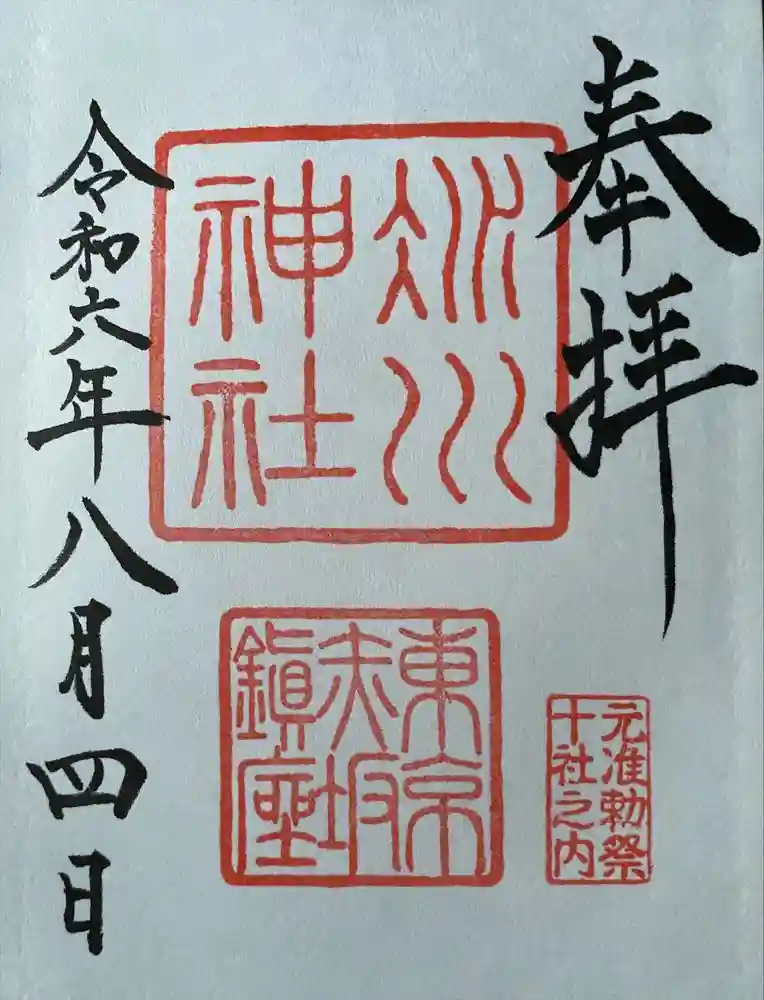 奉拝
氷川
神社
東京
赤坂
鎮座
元准勅祭
十社之内
令和六年八月四日